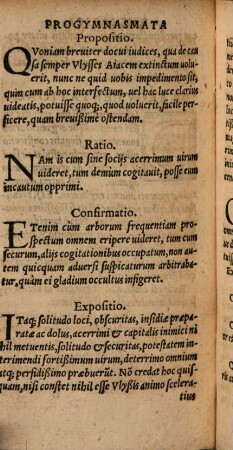 PROGYMNASMATA
Propositio.
QVoniam breuiter docui iudices, qua de cau
sa semper Vlysses Aiacem extinctum uolu
erit, nunc ne quid uobis impedimento sit,
quin cum ab hoc interfectum, uel hac luce clarius
uideatis, potuisse quoq;, quod uoluerit, facile per
ficere, quam breuißime ostendam.
Ratio.
NAm is cum sine socijs acerrimum uirum
uideret, tum demium cogitauit, posse eum
incautum opprimi.
Confirmatio.
ETenim cùm arborum frequentiam pro
spectum omnem eripere uideret, tum cum
securum, alijs cogitationibus occupatum, non au
tem quicquam aduersi suspicaturum arbitraba
tur, quàm ei gladium occultus infigeret.
Expositio.
ITaq; solitudo loci, obscuritas, insidiæ præpara
tæ ac dolus, acerrimi & capitalis inimici ni
hil metuentis, solitudo & securitas, potestatem in
terimendi fortißimum uirum, deterrimo omnium
atq; perfidißimo præbuerũt. Nõ credat hoc quis
quam, nisi constet nihil esse Vlyßis animo scelera
tius